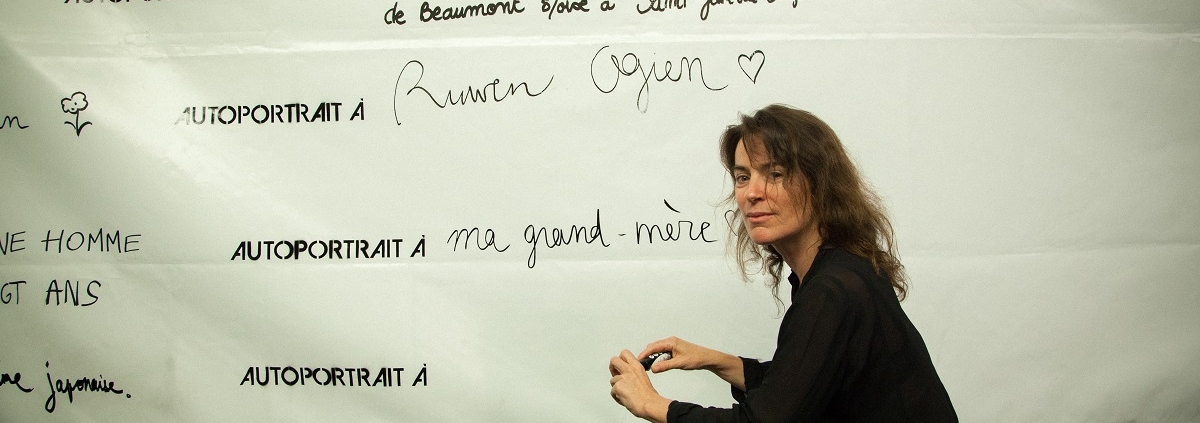 de Beaumont s/oise à Saint
AUTOPORTRAIT À Ruwen Ogien
AUTOPORTRAIT À ma grand-mère
NE HOMME
GT ANS
japonaise.
AUTOPORTRAIT À